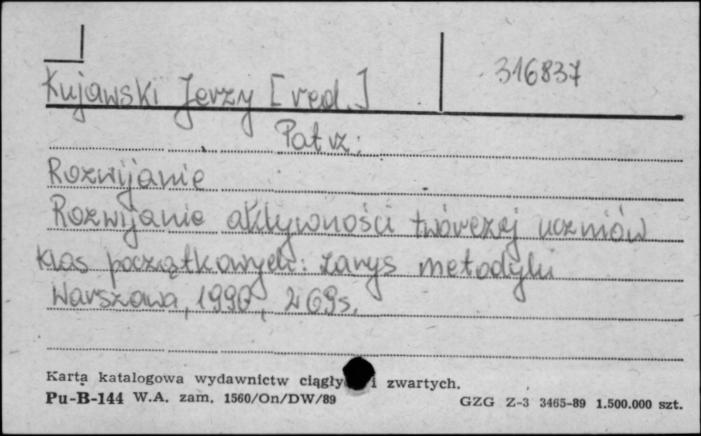 316837
Kujawski Jerzy [red.]
Patrz:
Rozwijanie
Rozwijanie aktywności twórczej uczniów
klas początkowych: zarys metodyki
Warszawa, 1990, 269s.
Karta katalogowa wydawnictw ciągły i zwartych.
Pu-B-144 W.A. zam. 1560/On/DW/89 GZG Z-3 3465-89 1.500.000 szt.